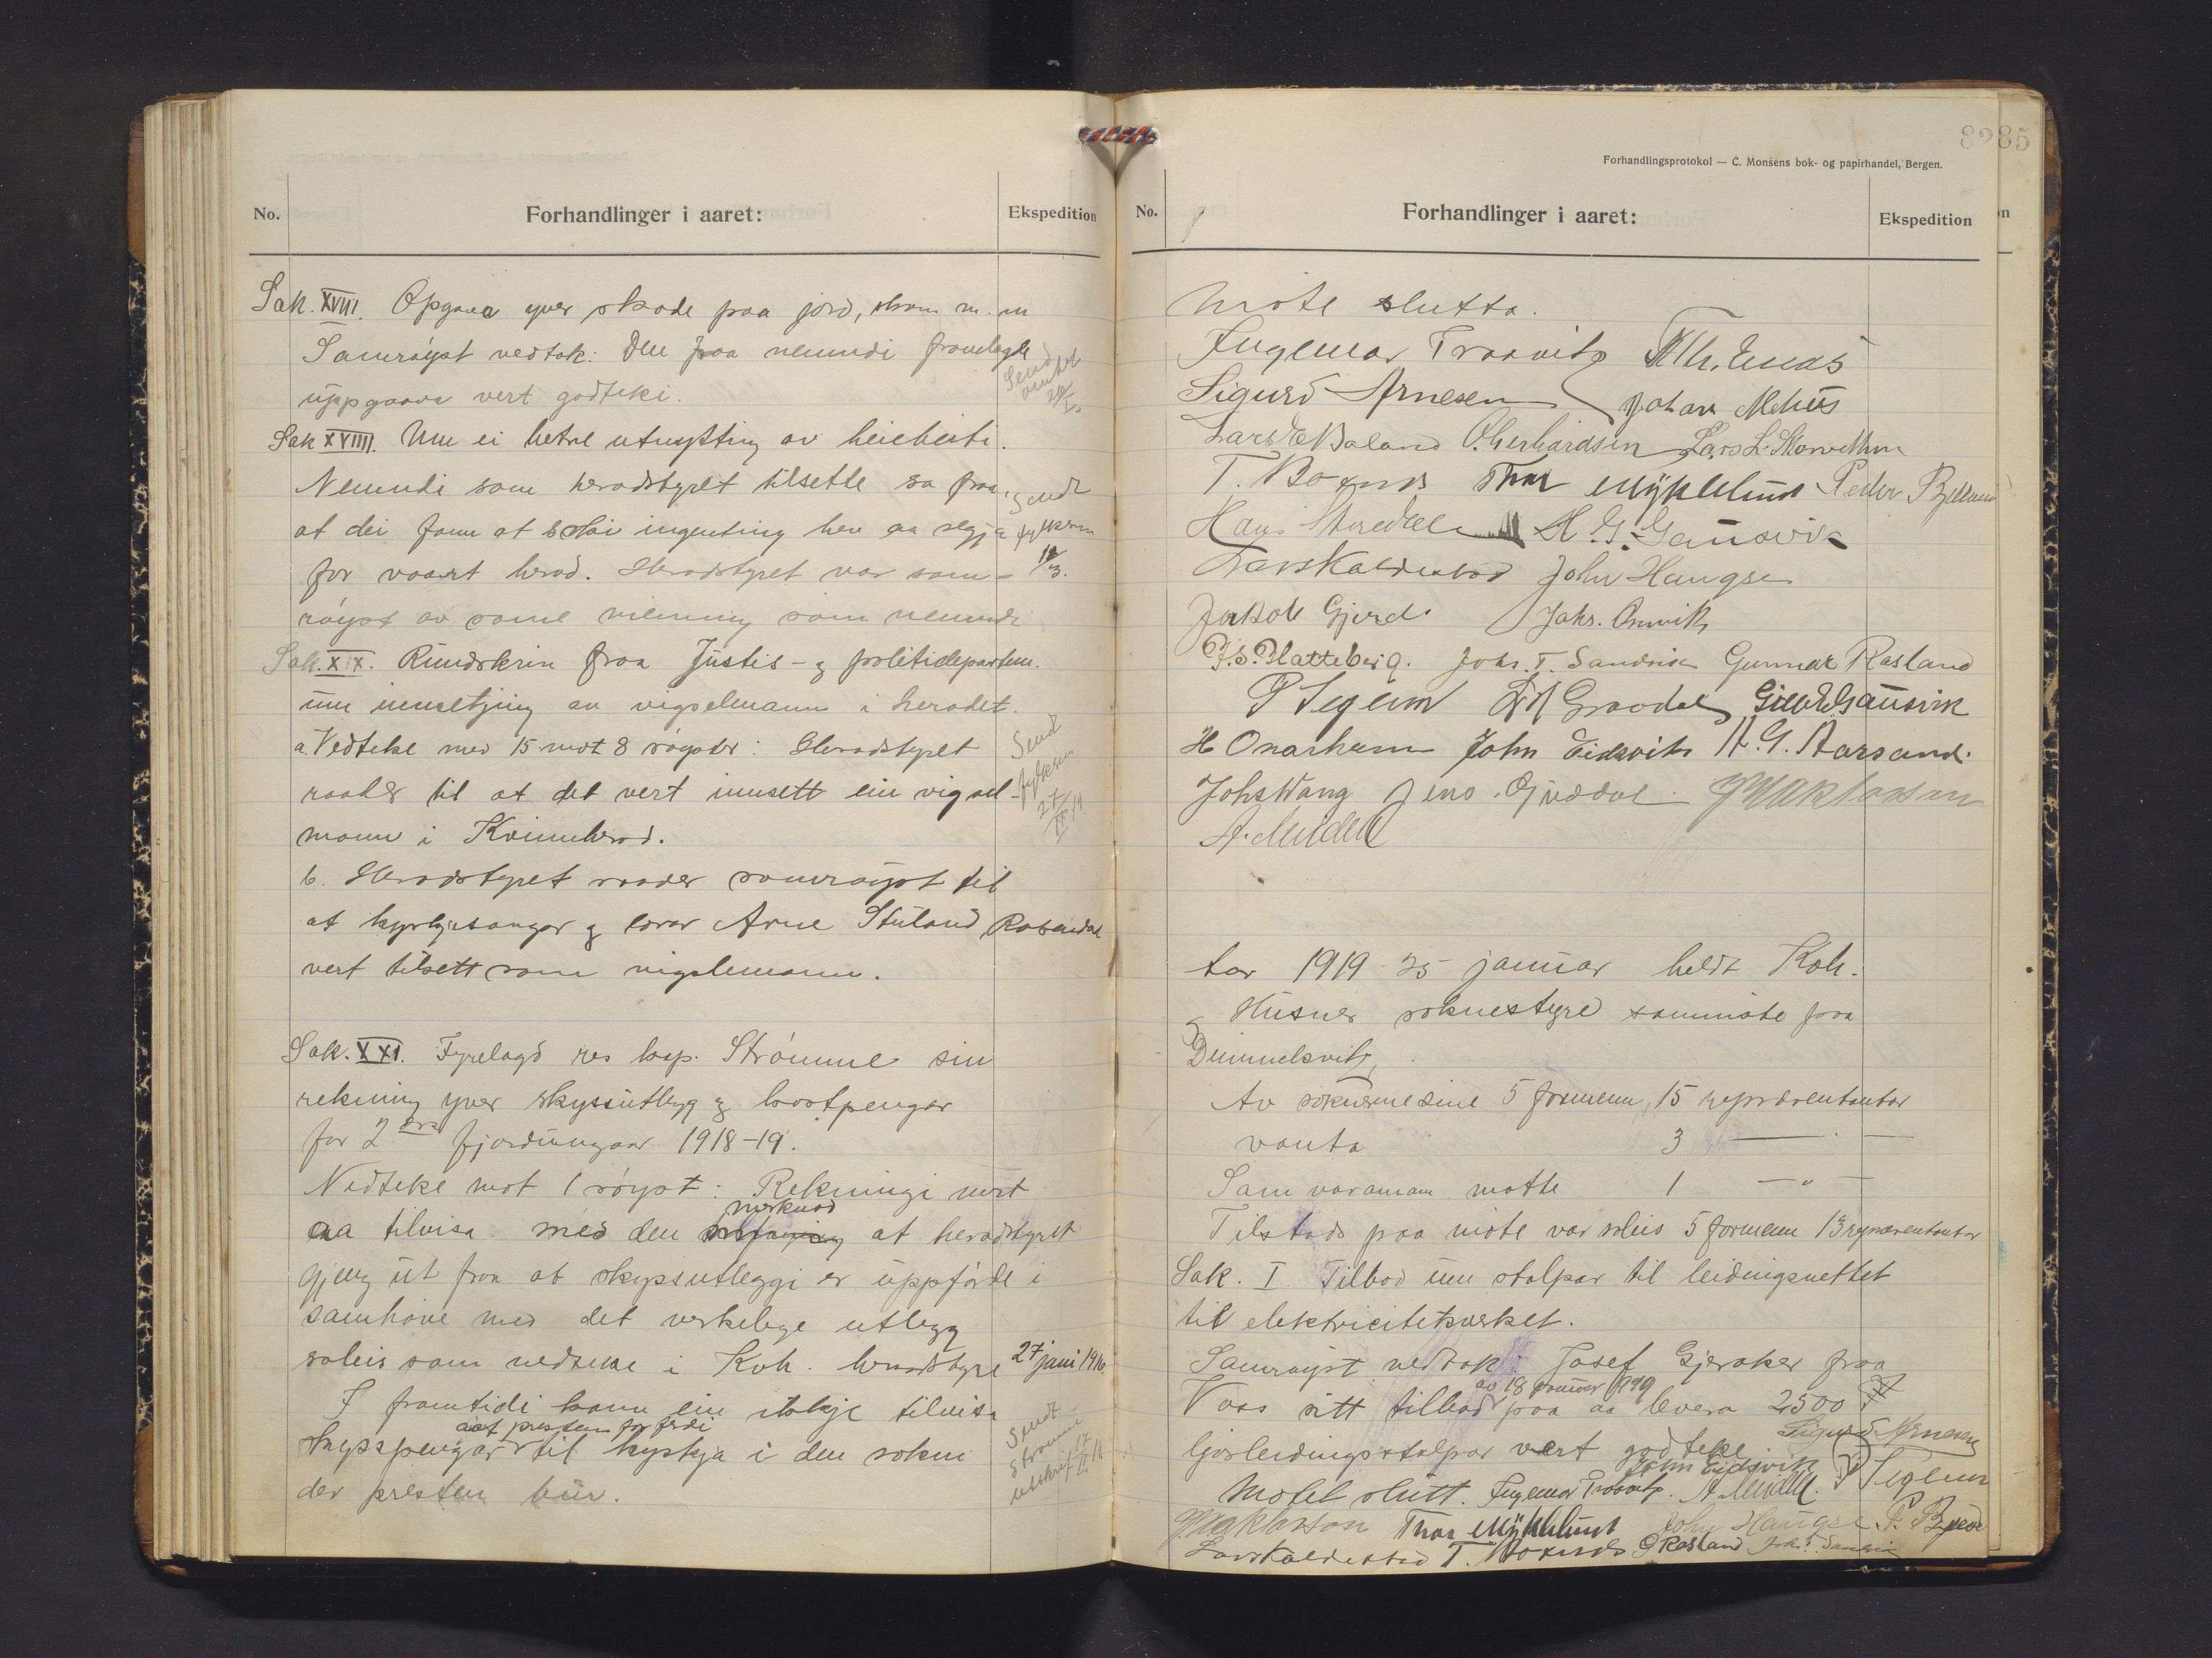 No. Forhandlinger i aaret: Ekspedition
Sak. XVIII. Opgava yver skade paa jord, m. m
Samrøyst vedtak: Den fraa nemndi framlagde
uppgaava vert godteki.
Send
amtet
Sak XVIIII. Um ei betre utnytting av beiteheiti.
Nemndi som heradstyret tilsette sa fraa
at dei fann at ingenting hev aa segja
for vaart herad. Heradstyret var sam-
røyst av same meining som nemndi
Sendt
fylksm
12/3.
Sak. XIX. Rundskriv fraa Justis- og politidepartem.
um innsetjing av vigselmann i heradet.
a. Vedteke med 15 mot 8 røyster: Heradstyret
raader til at det vert innsett ein vigsel-
mann i Kvinnherad.
Send
fylksm
27/II 19.
b. Heradstyret raader samrøyst til
at kyrkjesongar og lærar Arne Stuland Rosendal
vert tilsett som vigselmann.
Sak. XXI. Fyrelagd res kap. Strømme sin
rekning yver skyssutlegg og kostpengar
for 2dre fjordungaar 1918-19.
Vedteke mot 1 røyst: Rekningi vert
merknad
aa tilvisa med den at heradstyret
gjeng ut fraa at skyssutleggi er uppførde i
samhøve med det verkelege utlegg
soleis som vedteke i Kvh. heradstyre 27 juni 1916.
I framtidi kann ein ikkje tilvisa
aat presten for ferdi
skysspengar til kyrkja i den sokni
der presten bur.
Sendt
Strømme
utskrift 17/II 19
3285
Forhandlingsprotokol — C. Monsens bok- og papirhandel, Bergen.
No. Forhandlinger i aaret: Ekspedition
Møte slutta.
Ingemar Traavik
Sigurd Arnesen Johan Mehus
O. Gerhardsen
Thor Myklebust Peder
H. G. Gausvik
Lars Kaldestad John Haugse
Jakob Gjerde Johs. Omvik
P. S. Hatteberg. Johs. T. Sandvik Gunnar Rasland
P Segleim
H Onarheim John Eidsvik A. G. Aarsand.
Johs Vang Jens Gjuddal.
A. Mindell
Aar 1919 25 januar heldt Kvh.
og Husnes soknestyre sammøte paa
Dimmelsvik.
Av soknerne sine 5 formenn, 15 representantar
vanta 3 — " —
Sam varamann møtte 1 — " —
Tilstads paa møte var soleis 5 formenn 13 representantar
Sak. I Tilbod um stolpar til leidingsnettet
til elektricitetsverket.
Samrøyst vedtak: Josef Gjeraker fraa
av 18 januar 1919
Voss sitt tilbod paa aa levera 2500
ljosleidingsstolpar vert godteke. Sigurd Arnesen
John Eidsvik
Møtet slutt. Ingemar Traavik. A. Mindell. P Segleim
Thor Myklebust John Haugse P.
Lars Kaldestad T. G Rasland Johs. Sandvik